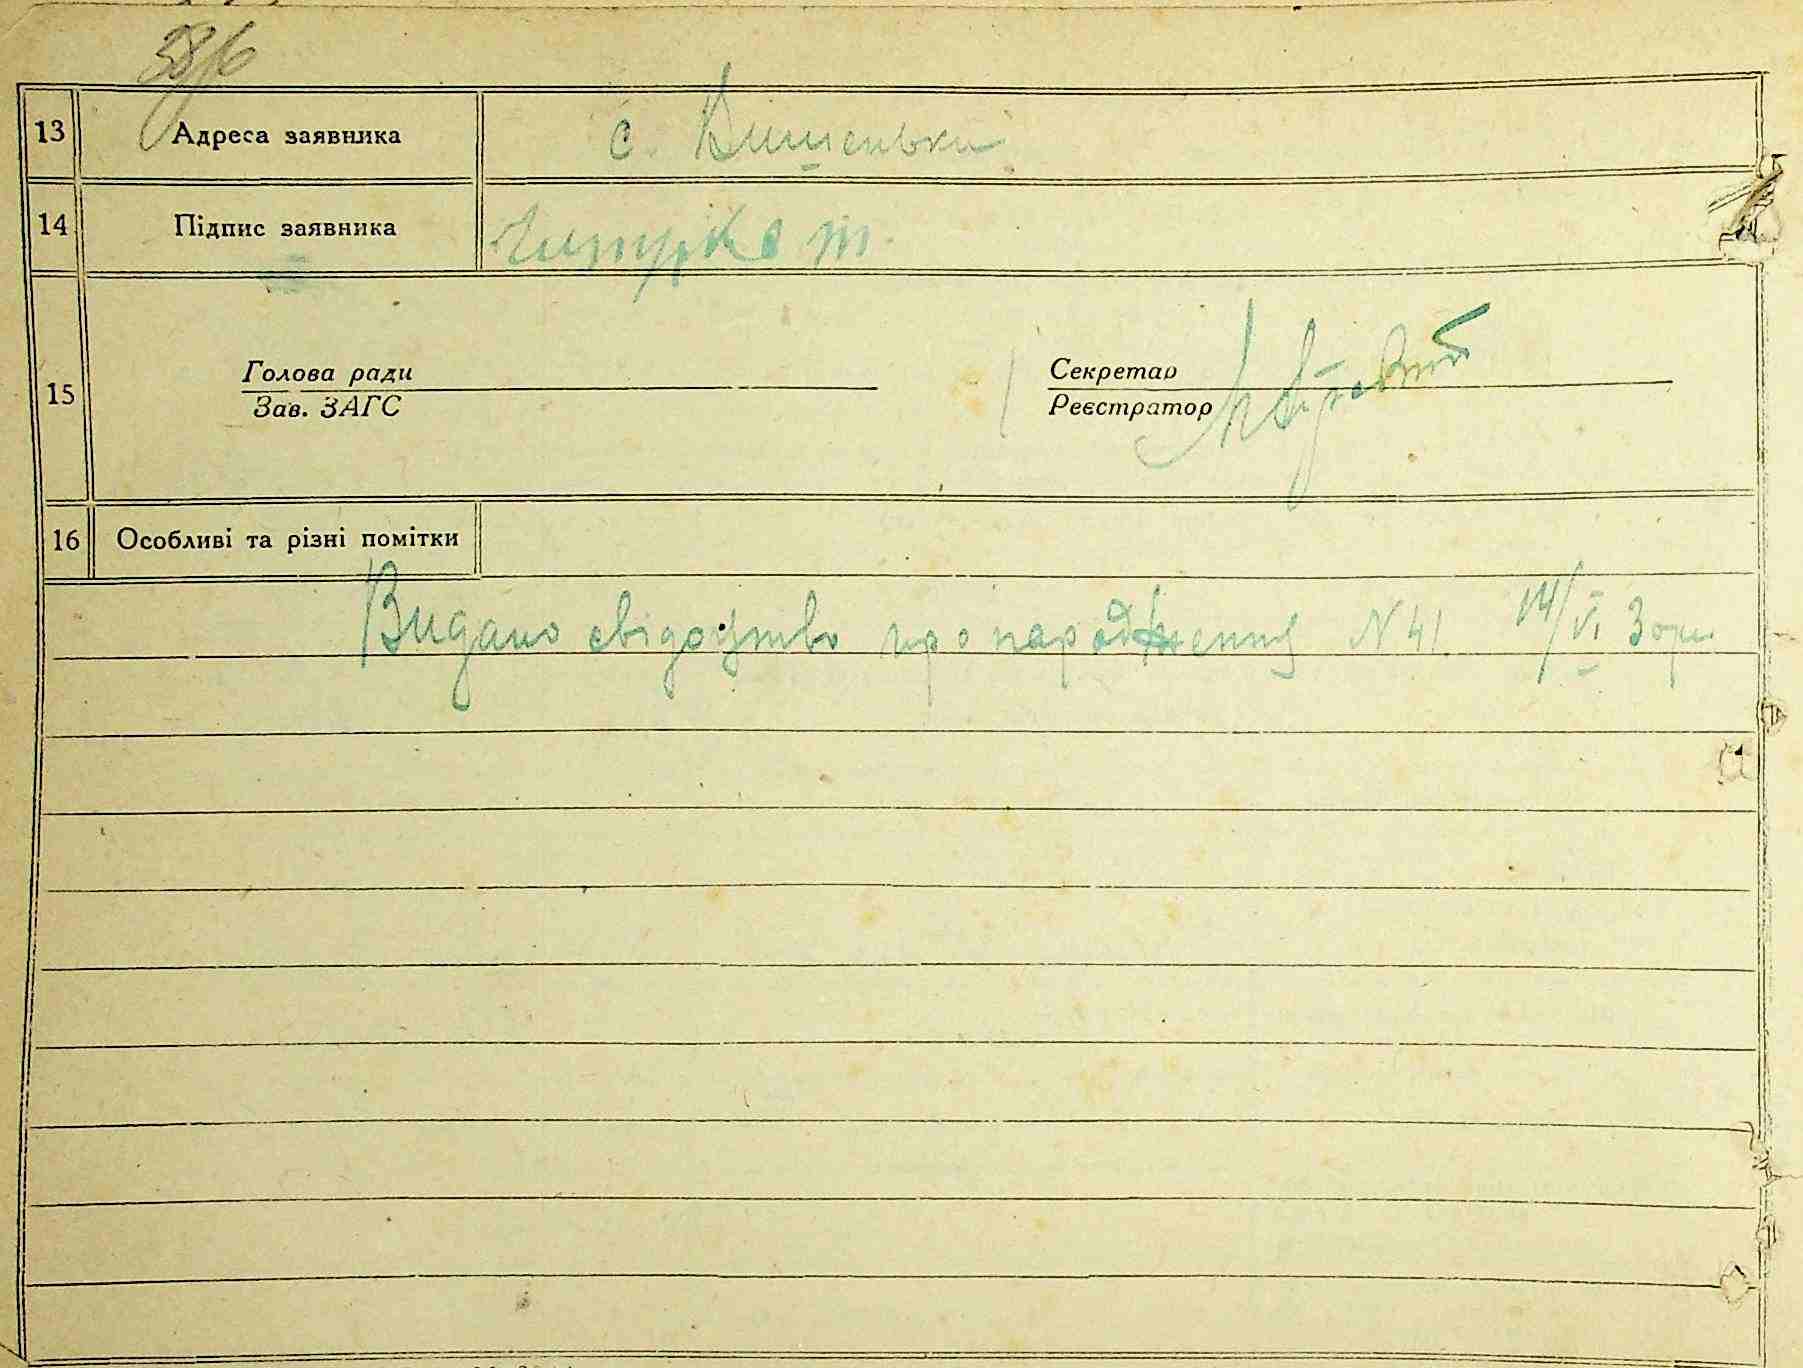 13 Адреса заявника с. Вишеньки
14 Підпис заявника
15
Голова ради Секретар
Зав. ЗАГС Реєстратор
16 Особливі та різні помітки
Видано свідоцтво про народження N 41 14/VI